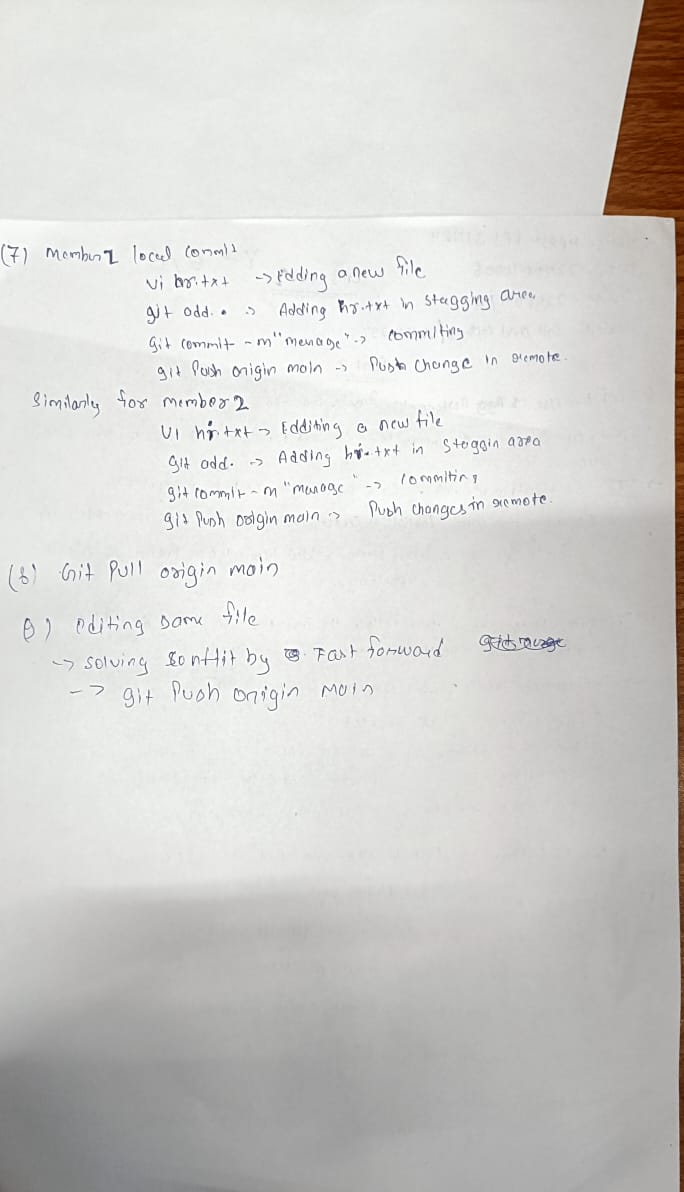 (7) Member 1 local commit
vi hr.txt -> Edding a new file
git add . -> Adding hr.txt in stagging area
git commit -m "menage" -> commiting
git Push origin main -> Push change in remote.
Similarly for member 2
vi hr.txt -> Edditing a new file
git add. -> Adding hr.txt in Staggin area
git commit -m "manage" -> commiting
git Push origin main -> Push changes in remote.
(8) Git Pull origin main
9) editing same file
-> solving conflit by Fast forward
-> git Push origin main